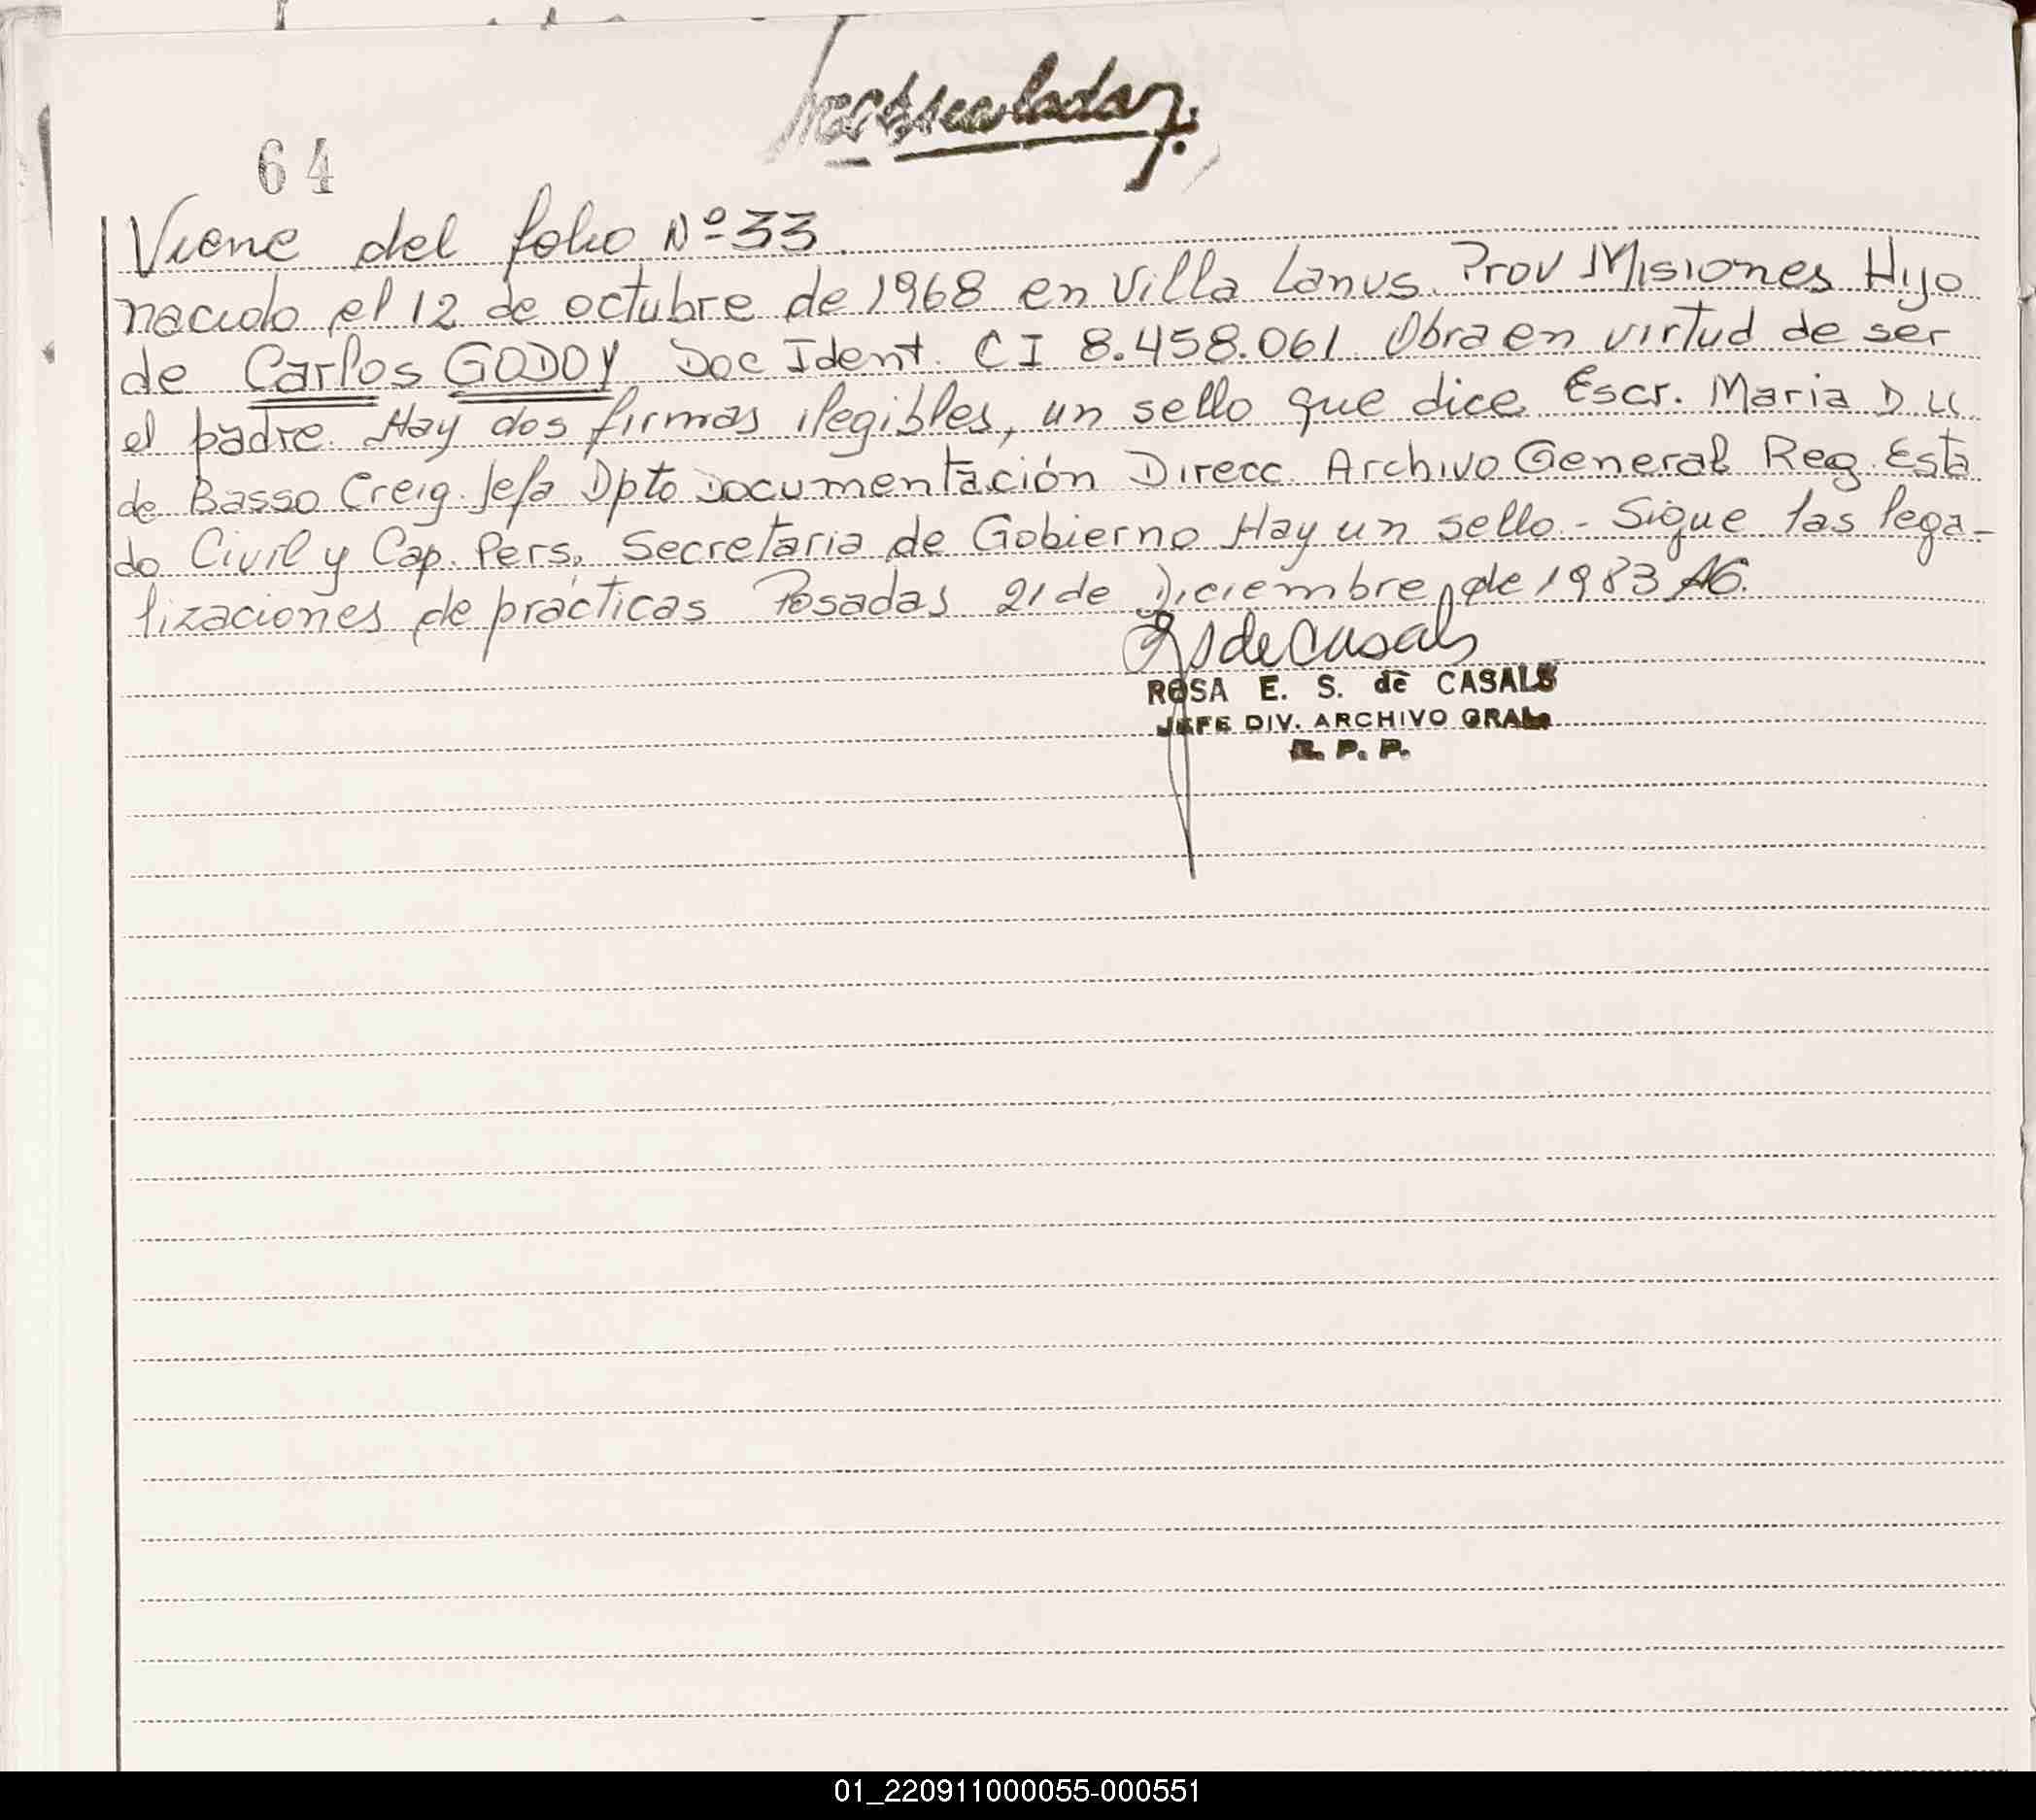 64
Viene del folio Nº 33.
nacido el 12 de octubre de 1968 en Villa Lanus. Prov Misiones Hijo
de Carlos GODOY Doc Ident. CI 8.458.061. Obra en virtud de ser
el padre. Hay dos firmas ilegibles, un sello que dice Escr. Maria D U
de Basso Creig. Jefa Dpto Documentación Direcc. Archivo General Reg. Esta
do Civil y Cap. Pers. Secretaria de Gobierno Hay un sello - Sigue las lega-
lizaciones de prácticas Posadas 21 de Diciembre de 1983 AG.
RSdeCasals
ROSA E. S. de CASALS
JEFE DIV. ARCHIVO GRAL.
R. P. P.
01_220911000055-000551